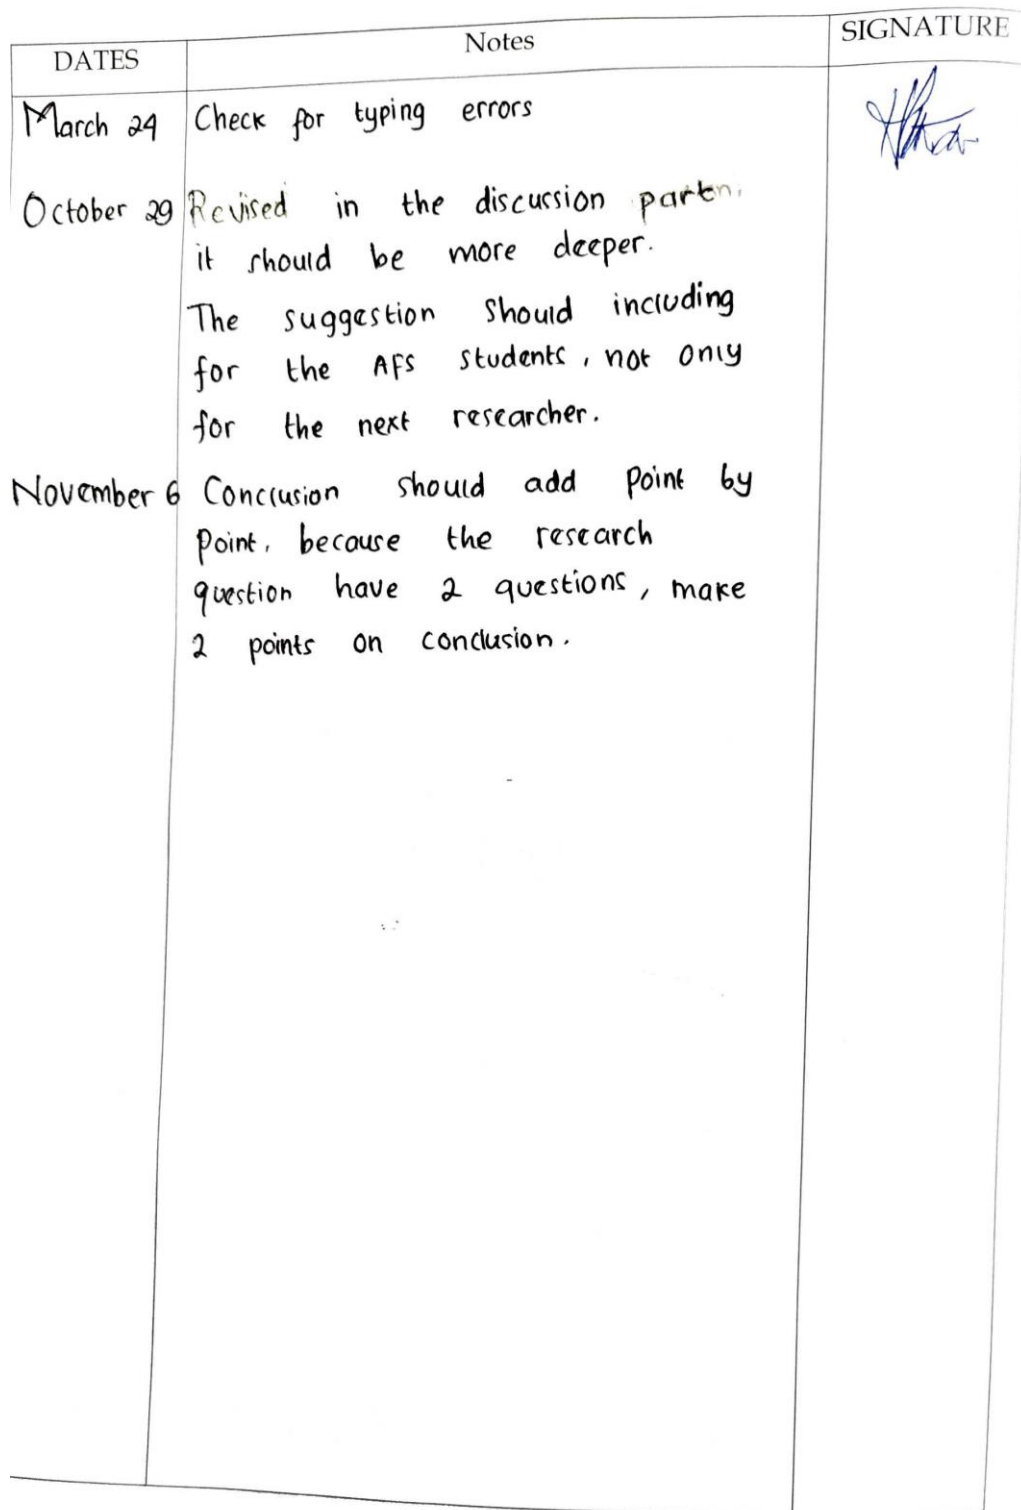 DATES Notes SIGNATURE
March 24 Check for typing errors
October 29 Revised in the discussion part
it should be more deeper.
The suggestion should including
for the AFS students, not only
for the next researcher.
November 6 Conclusion should add point by
point, because the research
question have 2 questions, make
2 points on conclusion.